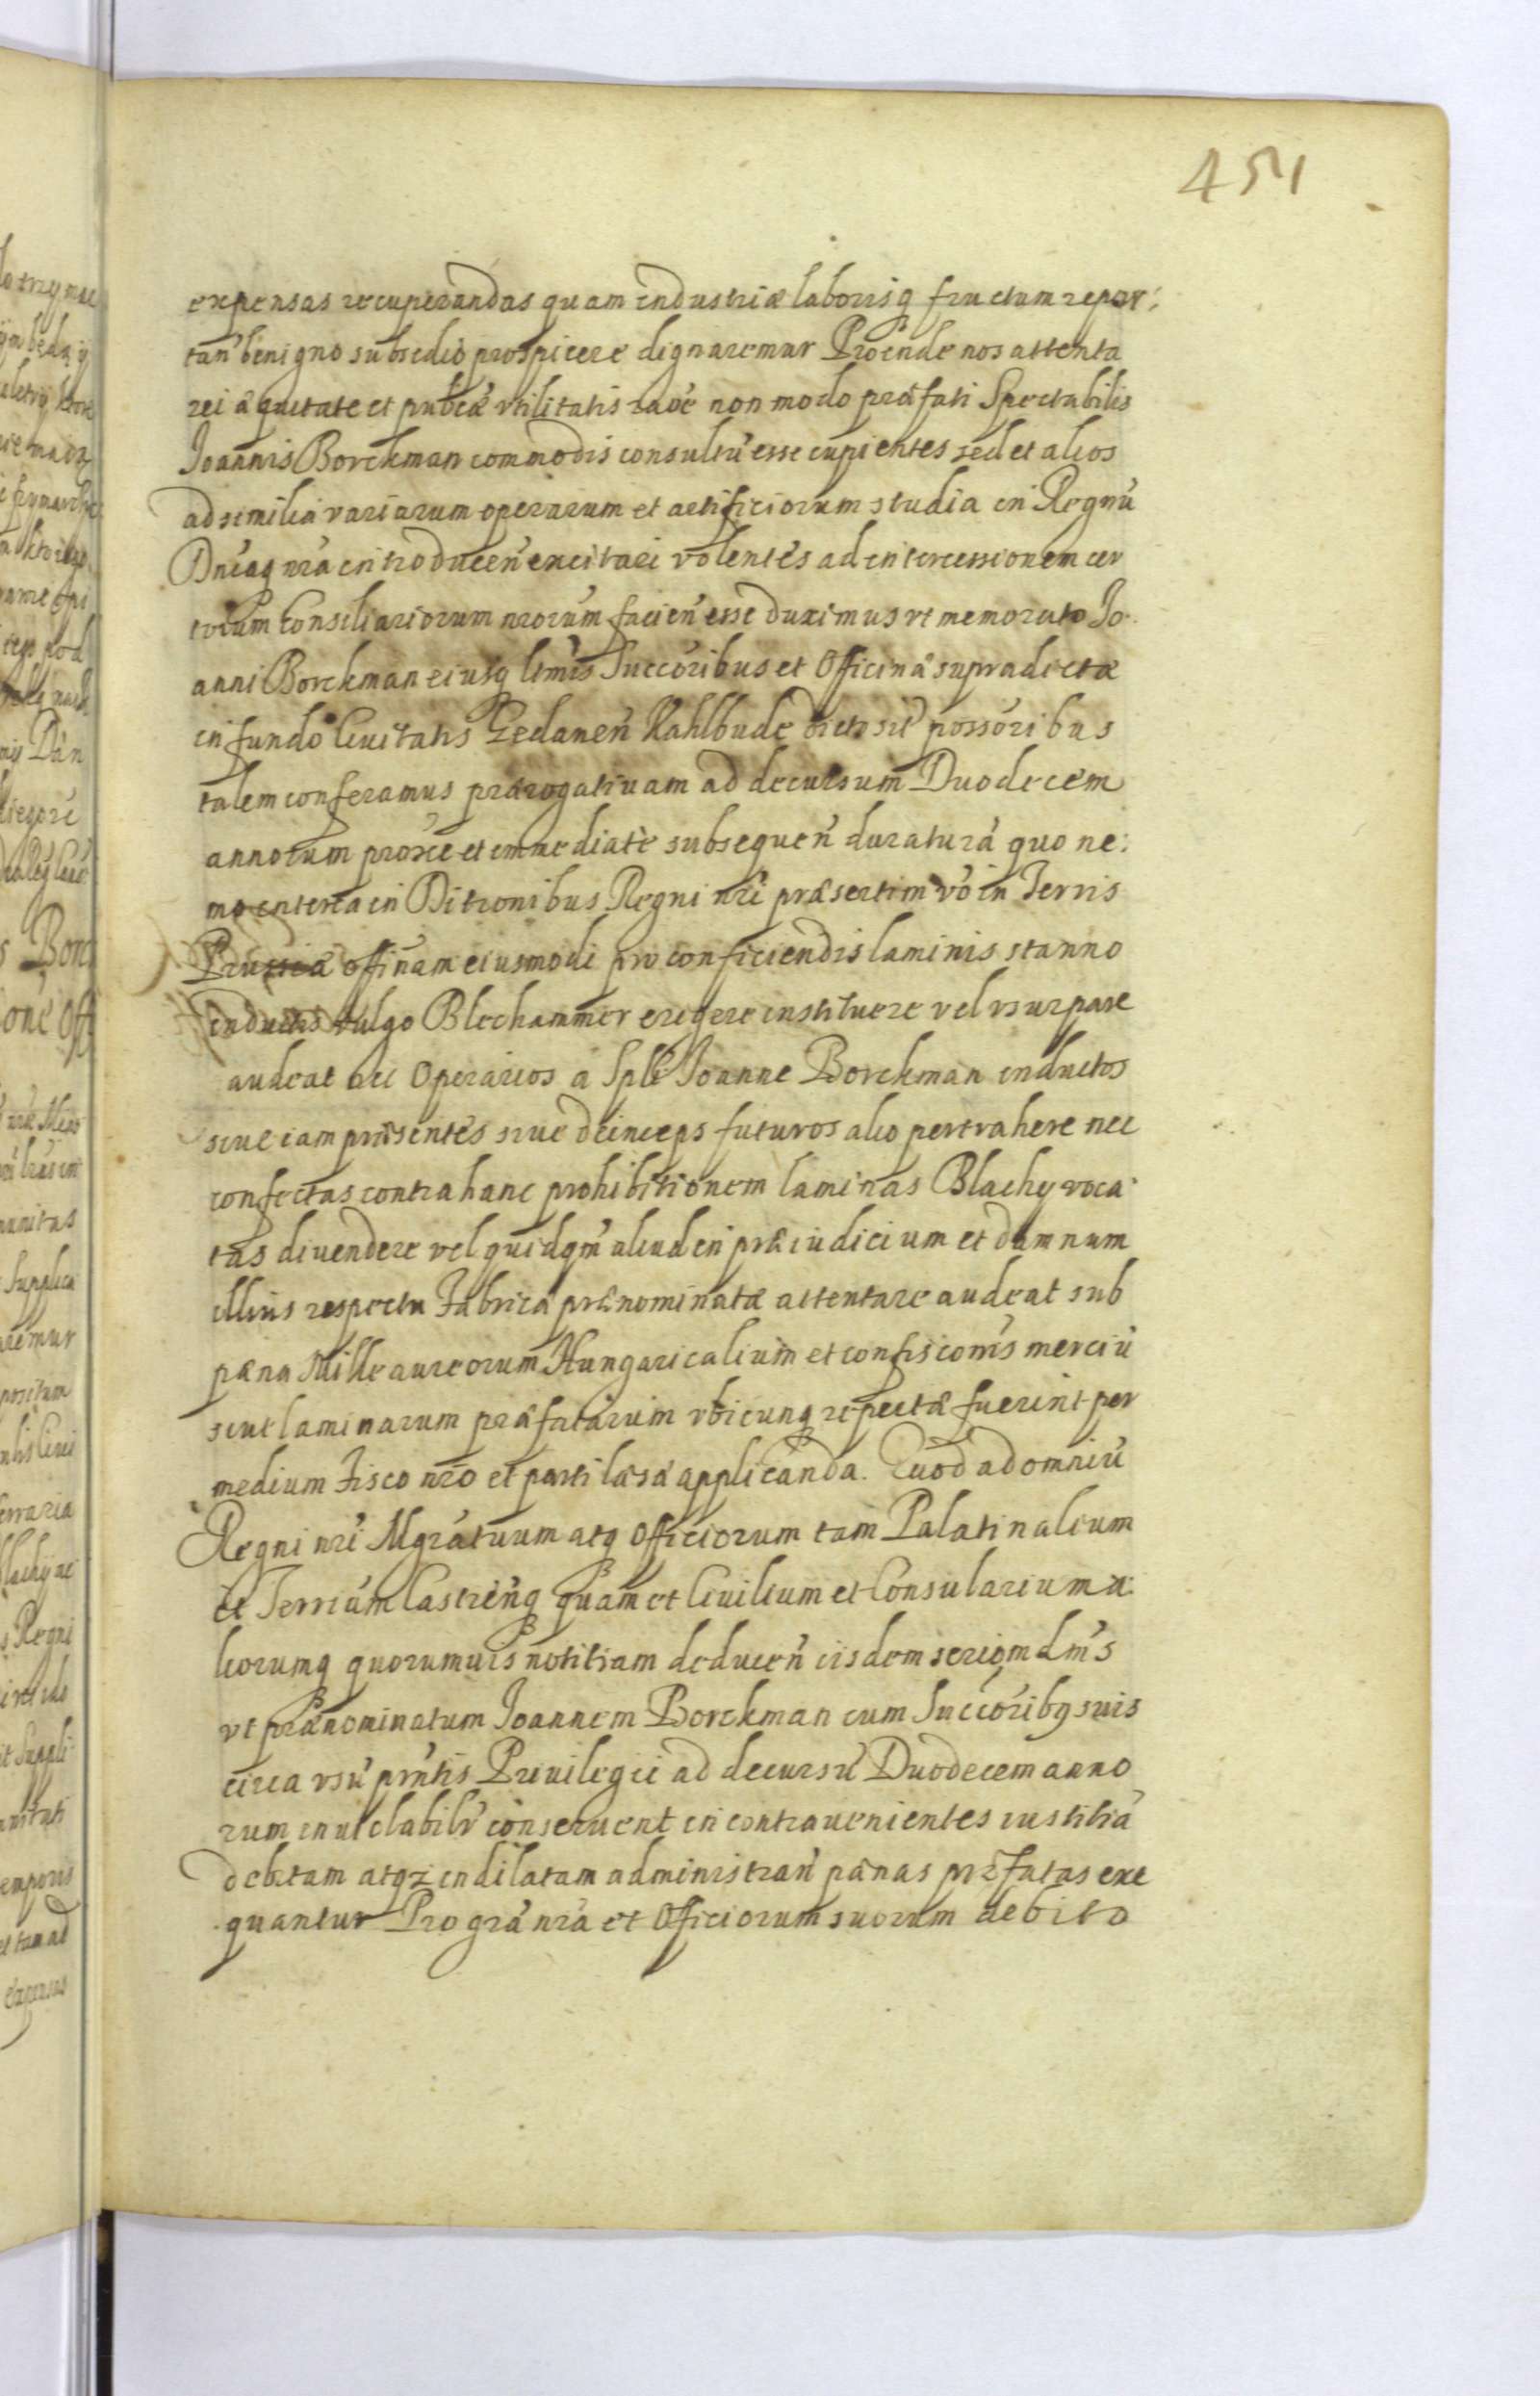 451
expensas recuperandas quam industriæ laborisq fructum repor:
tan benigno subsidio prospicere dignaremur Proinde nos attenta
rei æquitate et pubcæ vtilitatis raoe non modo præfati Spectabilis
Joannis Borckman commodis consultu esse cupientes sed et alios
ad similia variarum operarum et artificiorum studia in Regnu
Dniaq nra introducen excitari volentes ad intercessionem cer
torum Consiliariorum nrorum facien esse duximus vt memorato Jo
anni Borckman eiusq ltmis Succoribus et Officinæ supradictæ
in fundo Ciuitatis Gedanen Kahlbude dicto sit possoribus
talem conferamus prærogatiuam ad decursum Duodecem
annorum proxe et immediate subsequen duratura quo ne:
mo interea in Ditionibus Regni nri præsertim vo in Terris
Prussiæ offinam eiusmodi pro conficiendis laminis stanno
inductis vulgo Blechammer erigere instituere vel vsurpare
audeat nec Operarios a Spli Joanne Borckman inductos
siue iam præsentes siue deinceps futuros alio pertrahere nec
confectas contra hanc prohibitionem laminas Blachy voca
tas diuendere vel quidqm aliud in præiudicium et damnum
illius respectu Fabricæ prænominatæ attentare audeat sub
pæna Mille aureorum Hungaricalium et confisconis merciu
siue laminarum præfatarum vbicunq repertæ fuerint per
medium Fisco nro et parti læsæ applicanda. Quod ad omniu
Regni nri Mgratuum atq Officiorum tam Palatinalium
et Terrium Castrenq quam et Ciuilium et Consularium a:
liorumq quorumuis notitiam deducen iisdem serio mdms
vt prænominatum Joannem Borckman cum Succoribq suis
circa vsu prntis Priuilegii ad decursu Duodecem anno
rum inuiolabilr conseruent in contrauenientes iustitia
debitam atqz indilatam administran pænas præfatas exe
quantur Pro gra nra et Officiorum suorum debito